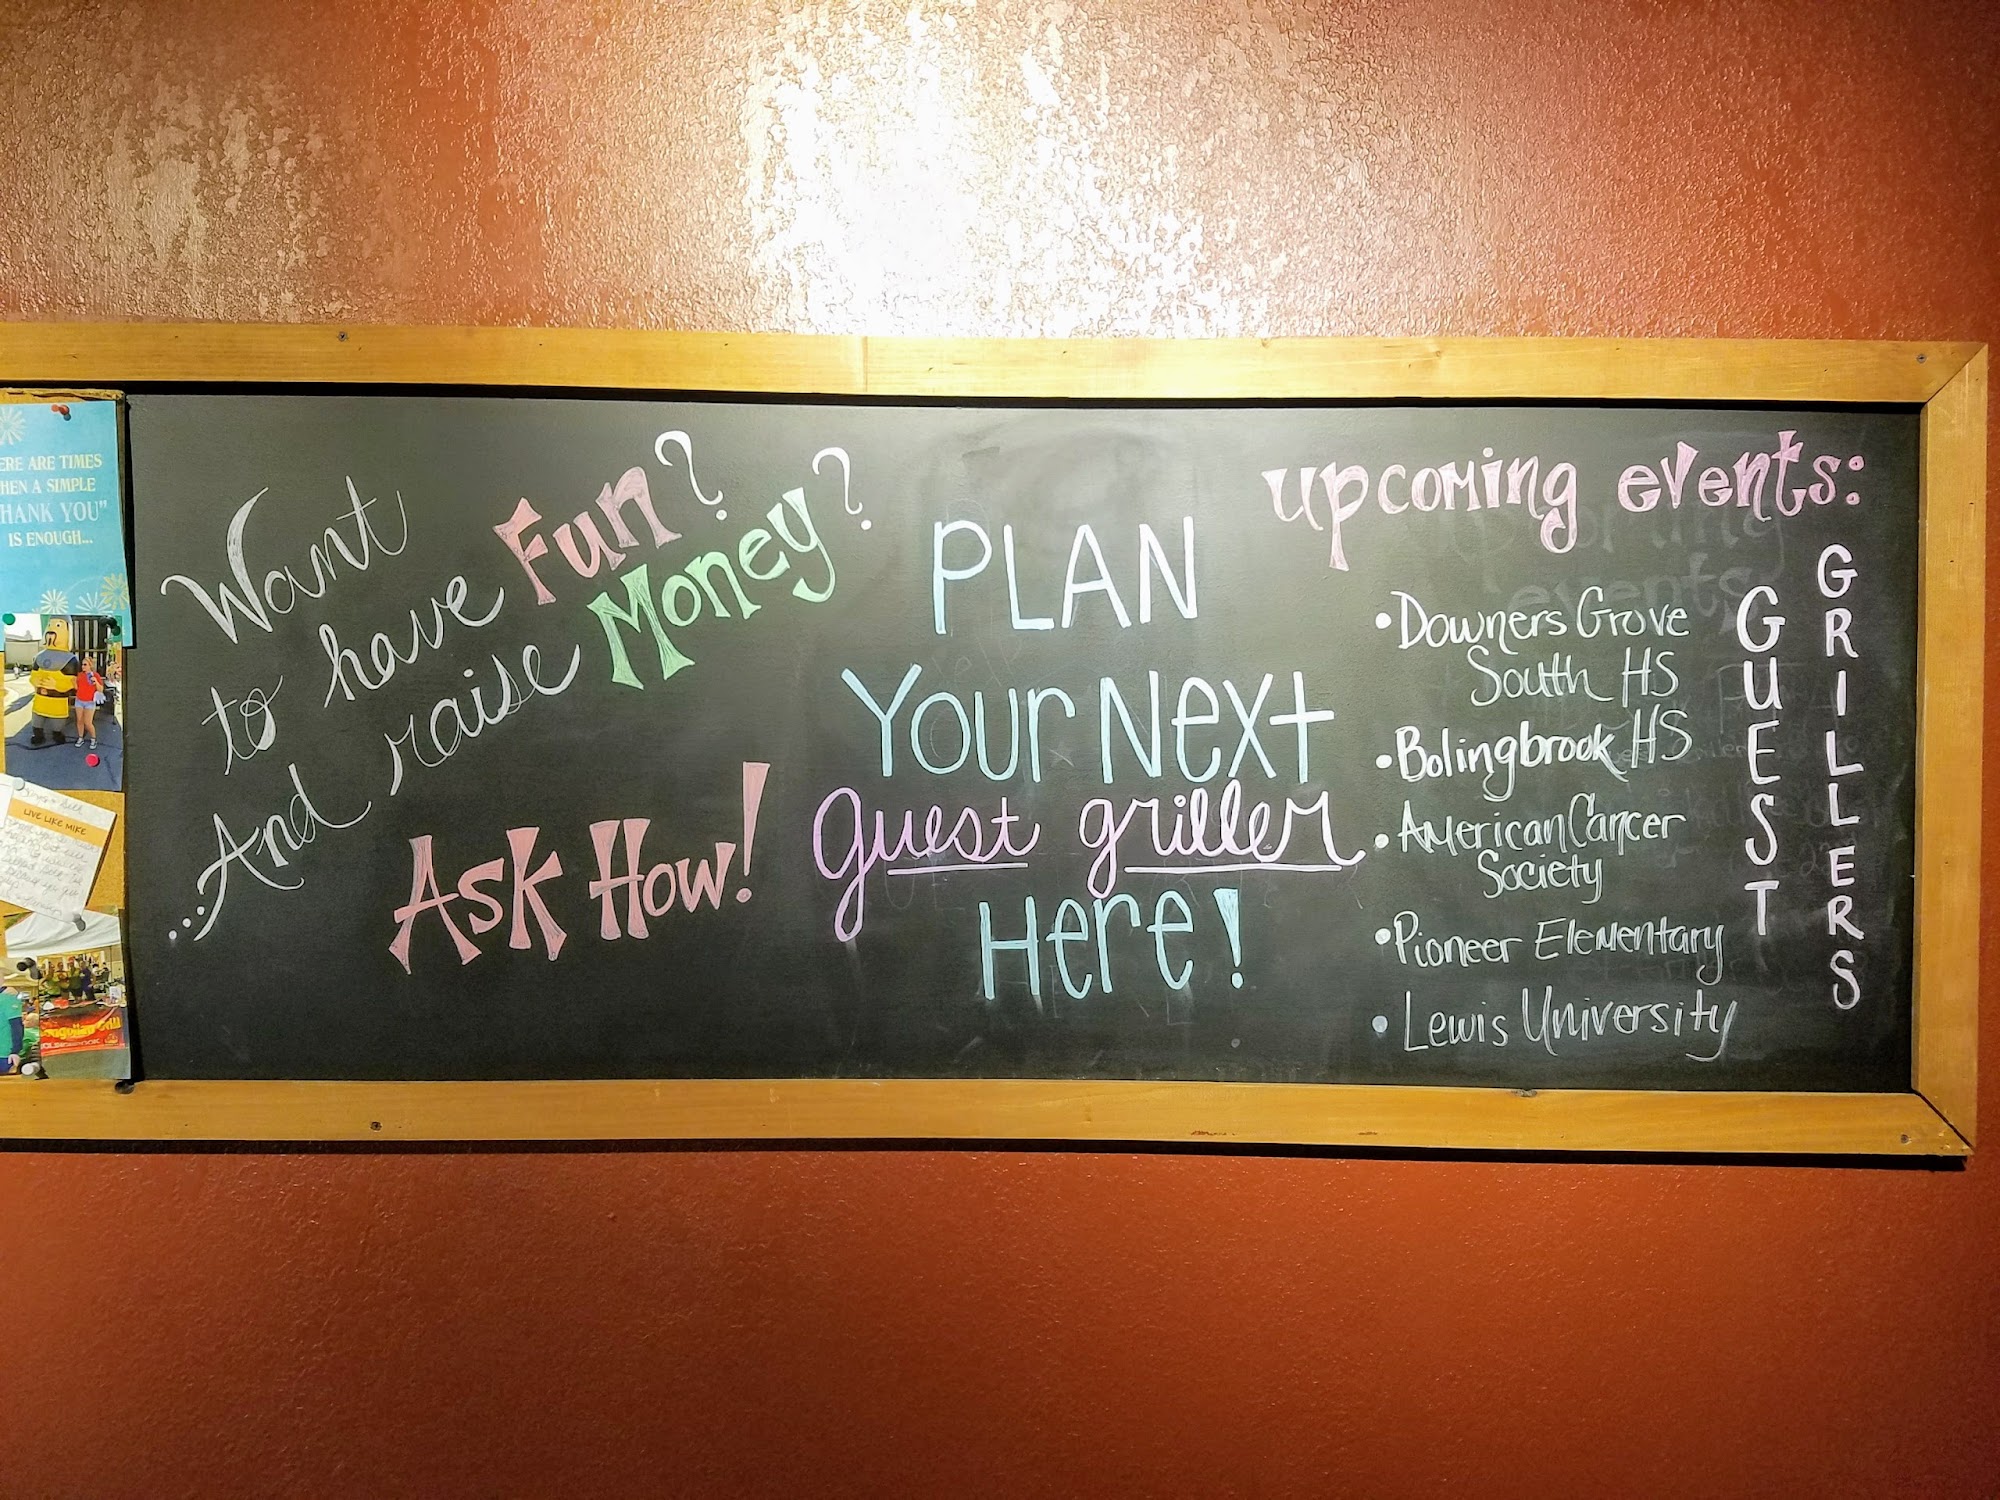 ERE ARE TIMES
HEN A SIMPLE
HANK YOU"
IS ENOUGH...
LIVE LIKE MIKE
Want
to have Fun?
...And raise Money?
Ask How!
PLAN
Your Next
guest griller
Here!
upcoming events:
• Downers Grove
South HS
• Bolingbrook HS
• American Cancer
Society
• Pioneer Elementary
• Lewis University
GUEST
GRILLERS